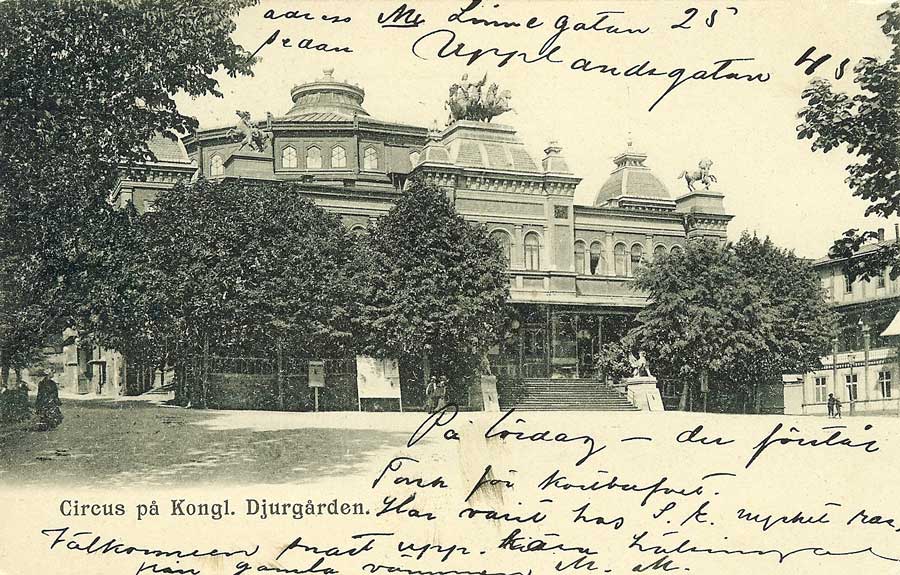 adress Linnegatan 25
sedan Upplandsgatan 45
På lördag — du förstår
Torsk för
Circus på Kongl. Djurgården.
Har varit hos S. K. mycket
Välkommen snart upp. Kära
från gamla vännen M. M.